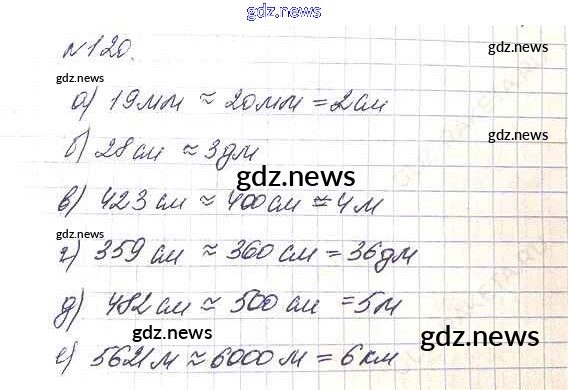 gdz.news
№120.
gdz.news
gdz.news
а) 19мм ≈ 20мм = 2см
б) 28см ≈ 3дм
gdz.news
gdz.news
в) 423 см ≈ 400 см = 4 м
gdz.news
г) 359 см ≈ 360 см = 36дм
д) 482 см ≈ 500 см = 5м
gdz.news
gdz.news
е) 5621м ≈ 6000 м = 6 км
gdz.news